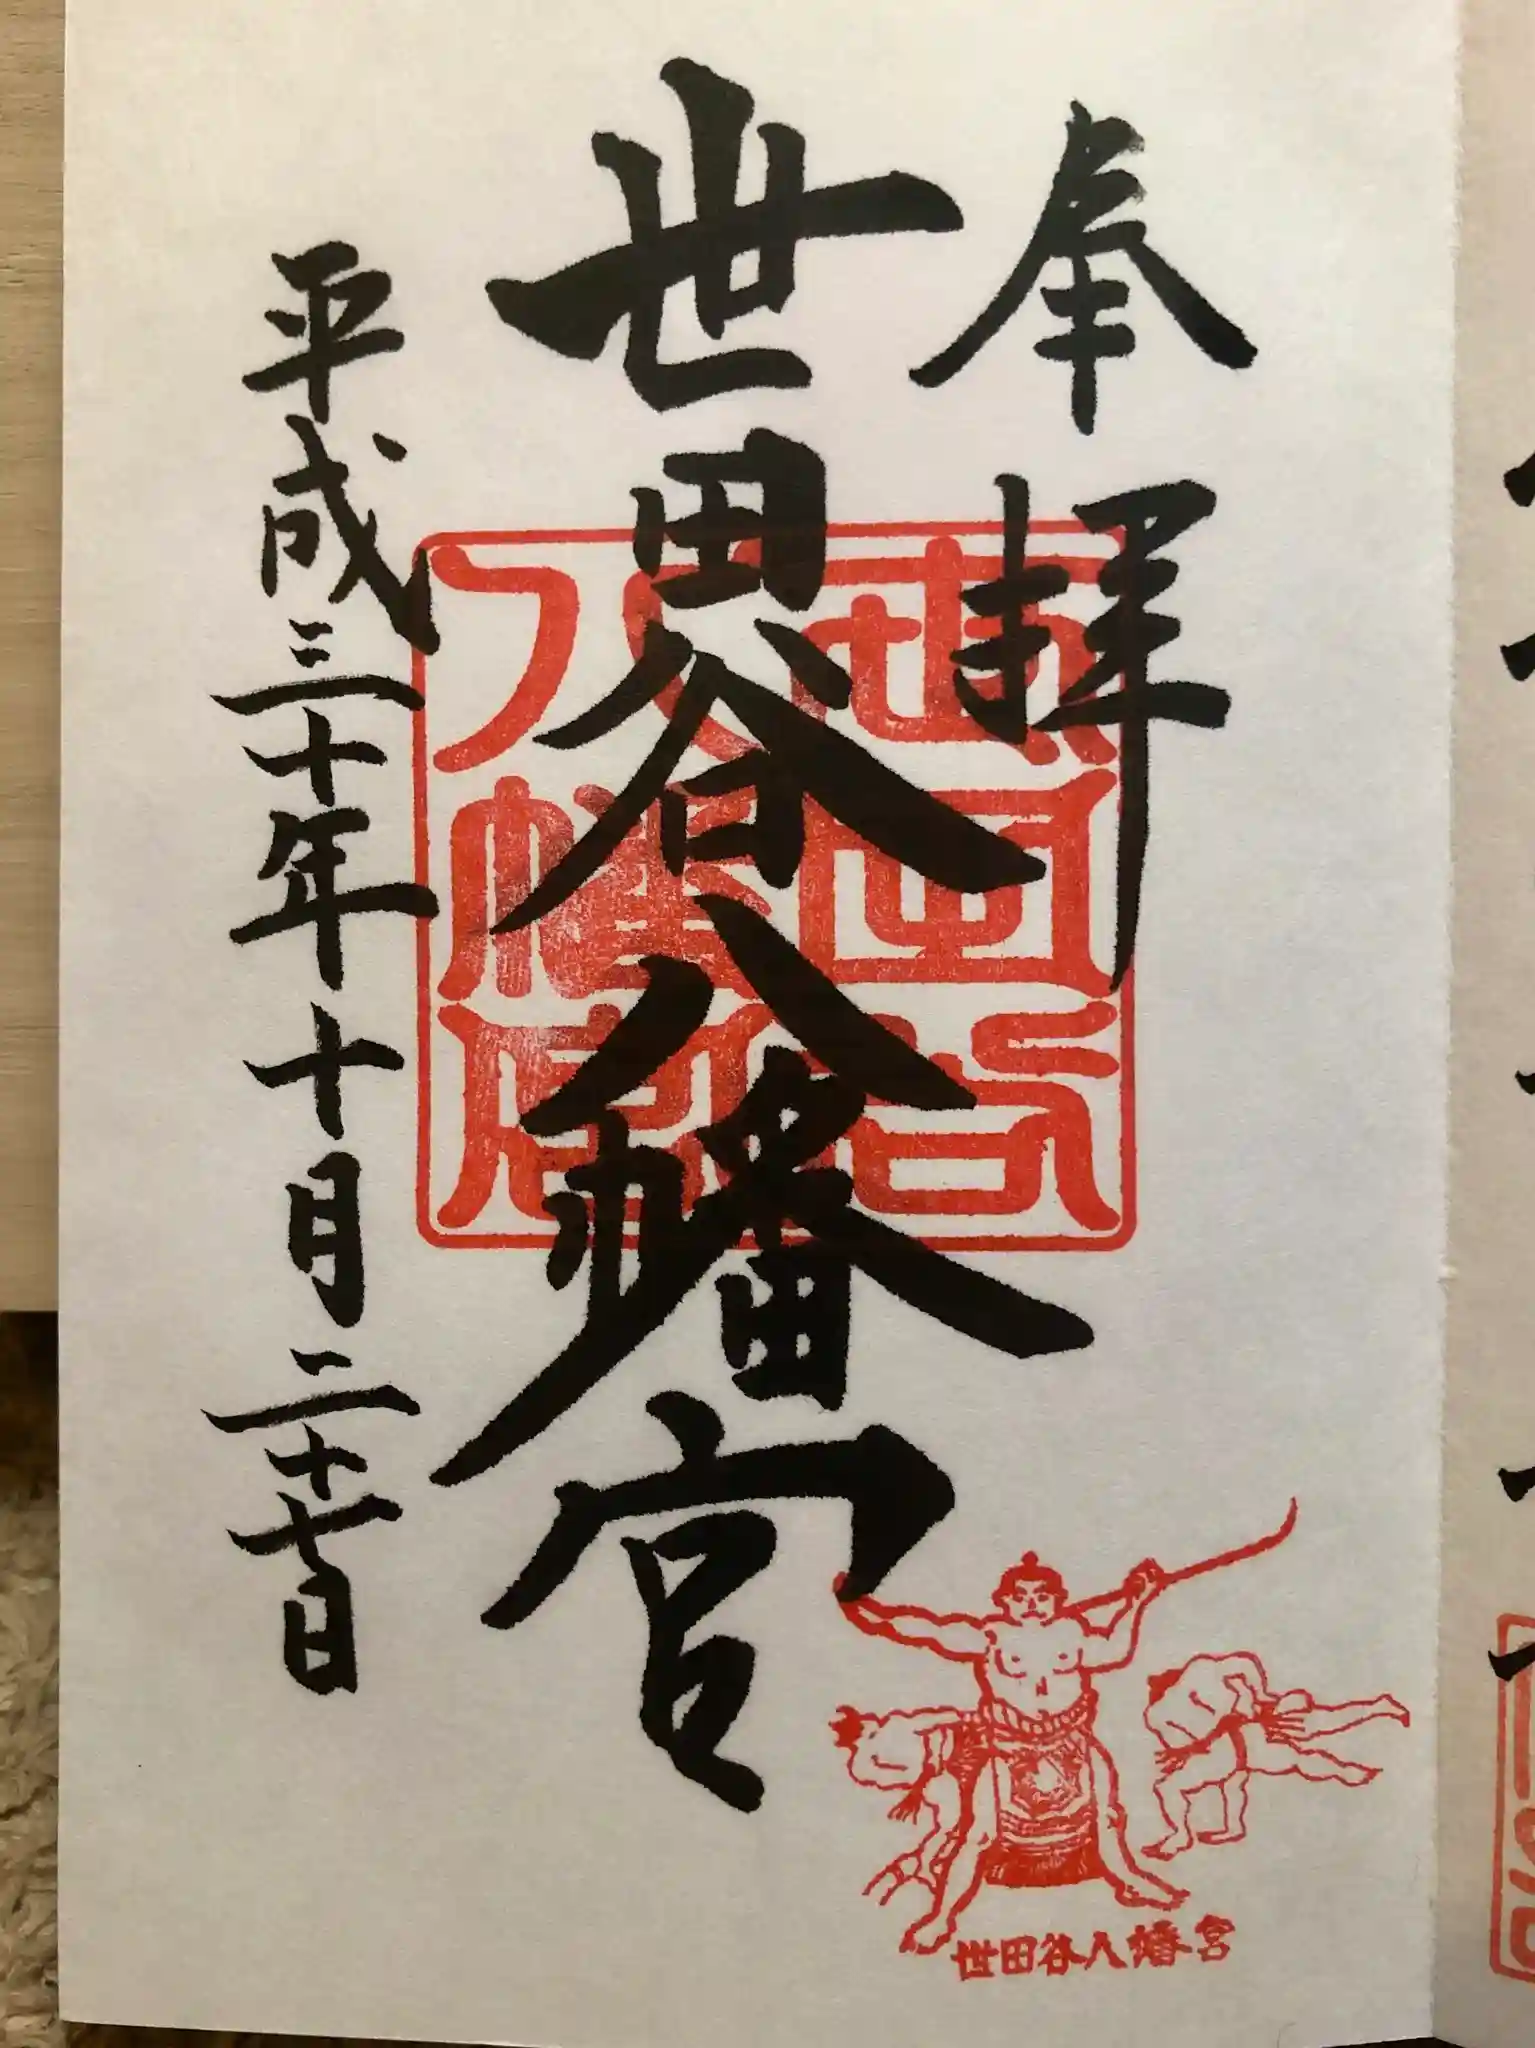 奉拝
世田谷八幡宮
平成三十年十月二十七日
世田谷八幡宮
世田谷八幡宮